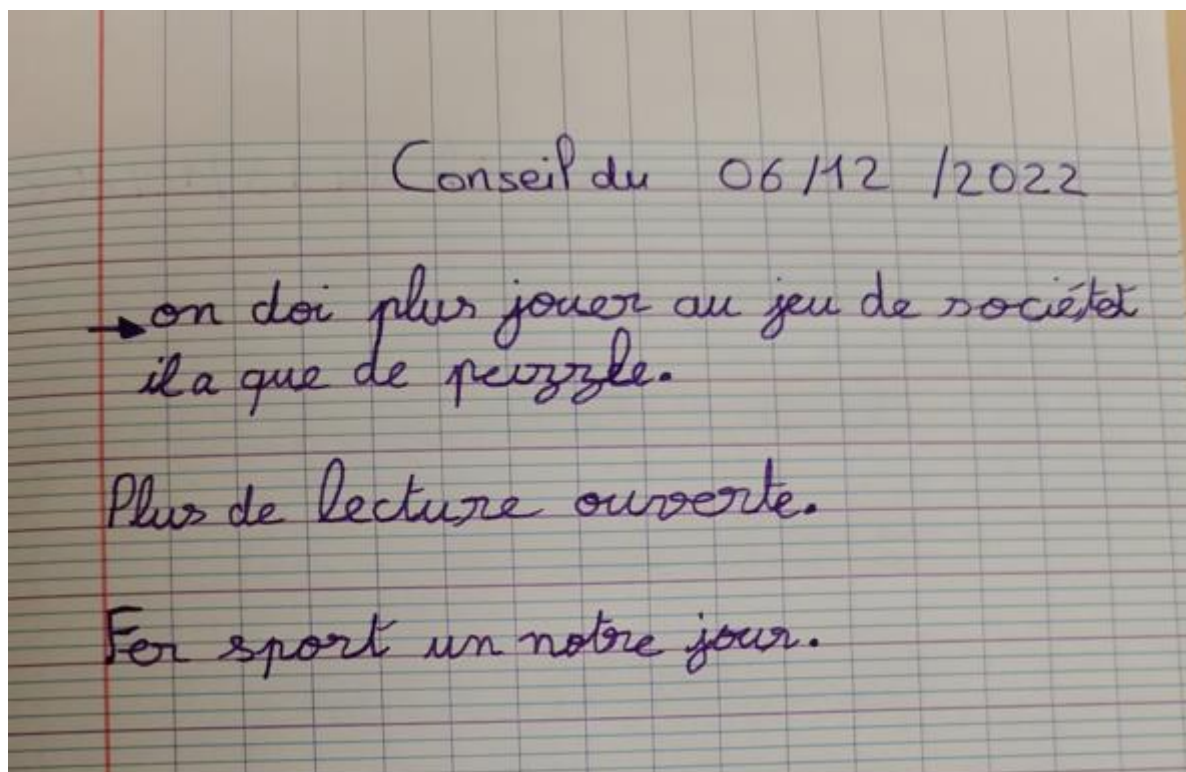 Conseil du 06/12/2022
→ on doi plus jouer au jeu de sociétet
il a que de puzzle.
Plus de lecture ouverte.
Fer sport un notre jour.